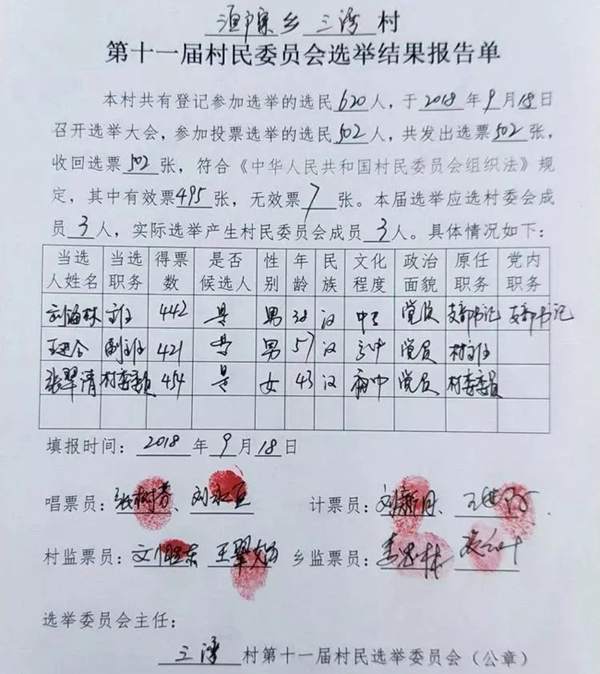 乡 三湾 村
第十一届村民委员会选举结果报告单
本村共有登记参加选举的选民 620 人，于 2018 年 9 月 18 日
召开选举大会，参加投票选举的选民 502 人，共发出选票 502 张，
收回选票 502 张，符合《中华人民共和国村民委员会组织法》规
定，其中有效票 495 张，无效票 7 张。本届选举应选村委会成
员 3 人，实际选举产生村民委员会成员 3 人。具体情况如下：
当选人姓名 当选职务 得票数 是否候选人 性别 年龄 民族 文化程度 政治面貌 原任职务 党内职务
主任 442 是 男 汉 党员 支部书记 支部书记
副主任 421 是 男 57 汉 高中 党员 村主任
张翠清 村委委员 454 是 女 43 汉 初中 党员 村委委员
填报时间： 2018 年 9 月 18 日
唱票员： 计票员：
村监票员： 乡监票员：
选举委员会主任：
三湾 村第十一届村民选举委员会（公章）